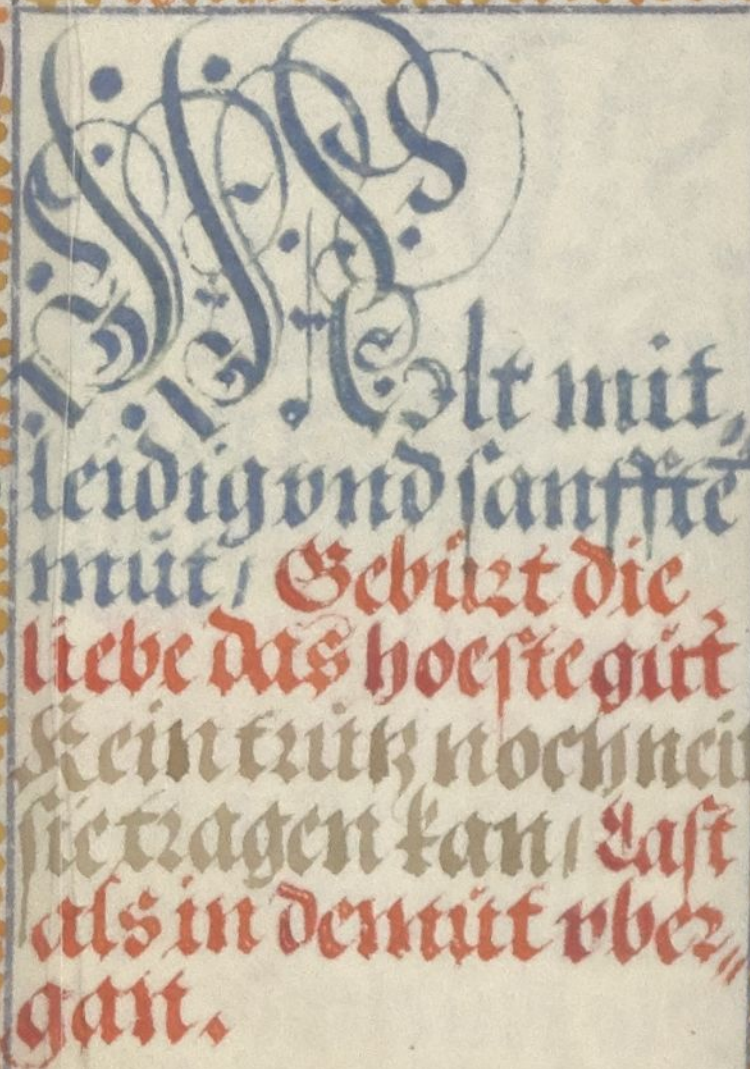 mit,
leidig vnd sanfftē
mŭt/ Gebŭrt die
liebe das hoeste gŭt
Kein trŭtz noch nei
sie tragen kan/ Last
als in demŭt vber,,
gan.